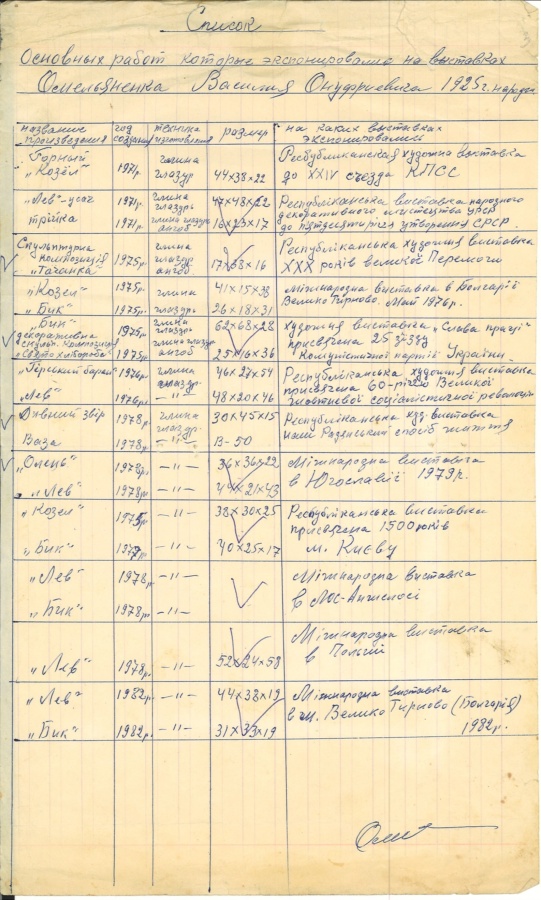 Список
Основных работ которые экспонировались на выставках
Омельяненка Василия Онуфриевича 1925г. народж
название произведения год создания техника изготовления размер на каких выставках экспонировались
"Горный Козёл" 1971г. глина глазур 44×38×22 Республиканская художня выставка до XXIV съезда КПСС
"Лев"-усач 1971г. глина глазурь 47×48×22 Республіканська виставка народного декоративного мистецтва УРСР
трійка 1971г. глина глазурь ангоб 16×23×17 до пятдесятиріччя утворення СРСР.
Скульптурна композиція "Тачанка" 1975р. глина глазур ангоб 17×68×16 Республіканська художня виставка XXX років великої Перемоги
"Козел" 1975р. глина 41×15×38 Міжнародна виставка в Болгарії
"Бик" 1975р. глазурь 26×18×31 Велико Тирново. Май 1976р.
"Бик" 1975р глина глазур 62×68×28 Художня виставка "Слава праці"
декоративна скульп. композиция "Свято хлібороба" 1975р глина глазурь ангоб 25×16×36 присвячена 25 з'їзду Комуністичної партії України
"Гірский баран" 1976р глина глазур 46×27×54 Республіканська художня виставка присвячена 60-річчю Великої
"Лев" 1976р -"- 48×20×46 жовтневої соціалістичної революції
Дивний звір 1978р глина глазур. 30×45×15 Республіканська худ. виставка
Ваза 1978р -"- В-50 наш Радянський спосіб життя
"Олень" 1978р. -"- 36×36×22 Міжнародна виставка
"Лев" 1978р -"- 44×21×43 в Югославії 1979р.
"Козел" 1975р -"- 38×30×25 Республіканська виставка присвячена 1500 років
"Бик" 1977р -"- 40×25×17 м. Києву
"Лев" 1978р -"- Міжнародна виставка
"Бик" 1978р -"- в Лос-Анжелосі
"Лев" 1978р -"- 52×24×58 Міжнародна виставка в Польщі
"Лев" 1982р -"- 44×38×19 Міжнародна виставка
"Бик" 1982р. -"- 31×33×19 в м. Велико Тирново (Болгарія) 1982р.